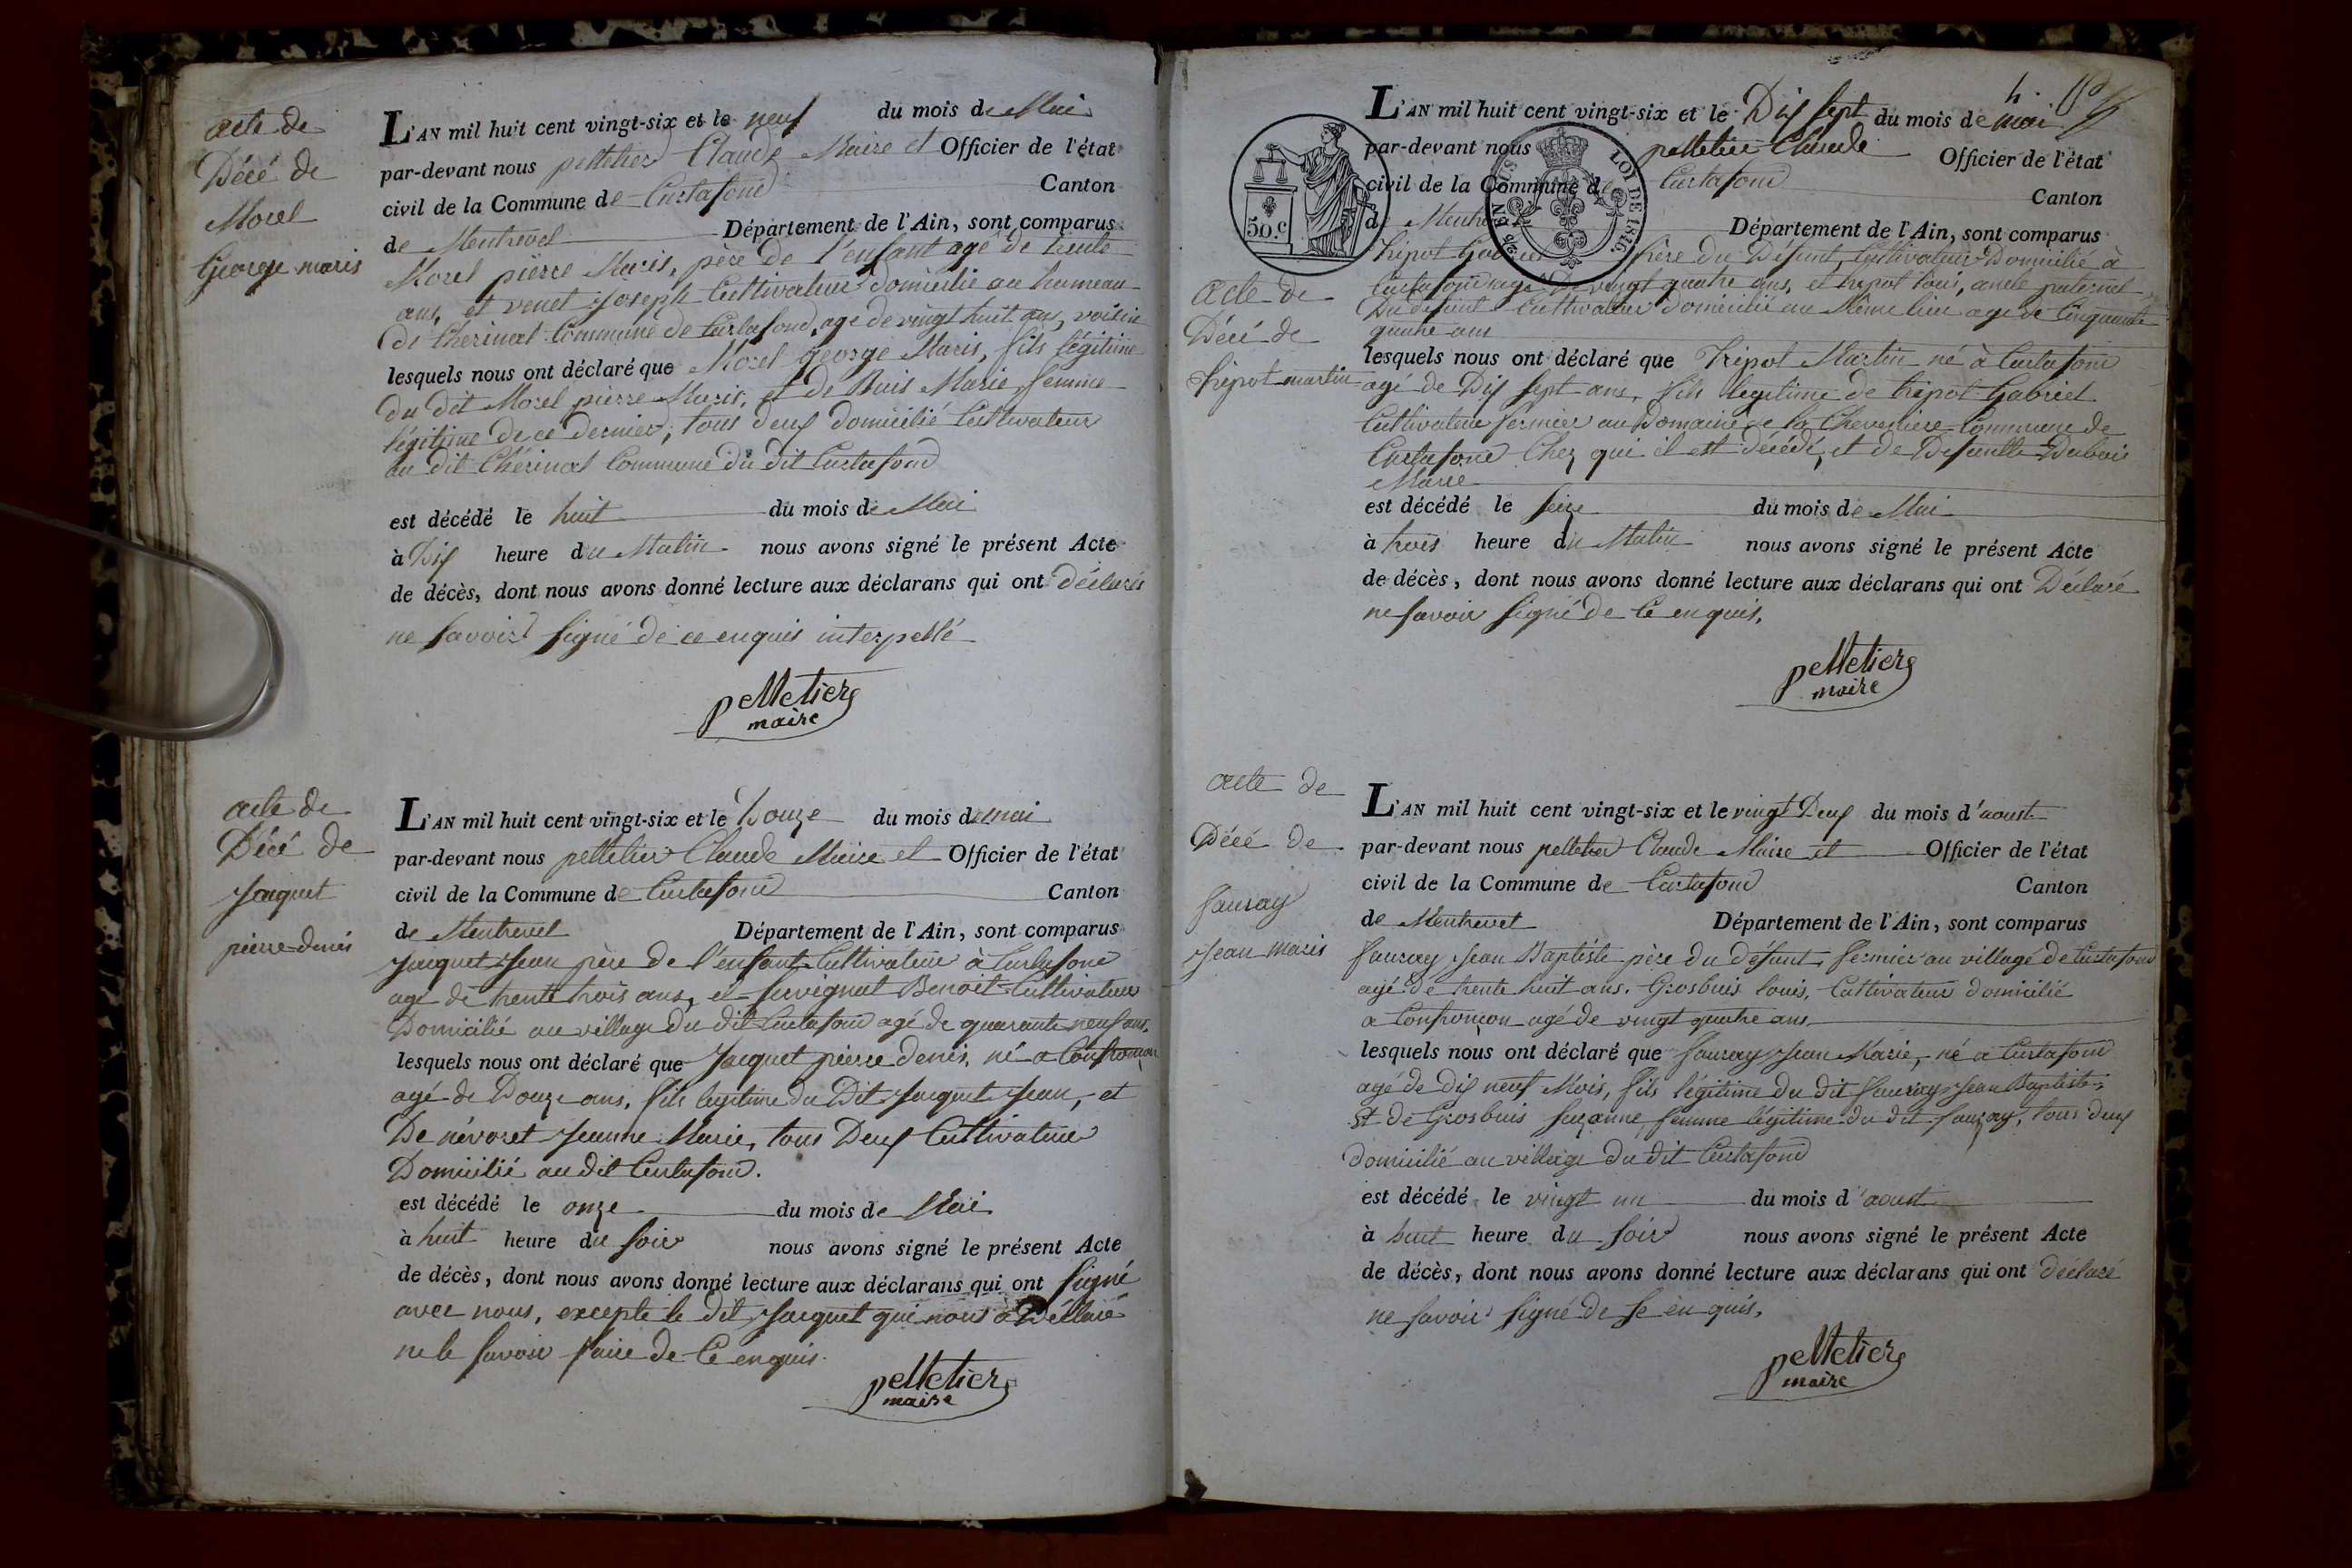 acte de
Décé de
Morel
George maris
L'AN mil huit cent vingt-six et le neuf du mois de Mai
par-devant nous pelletier Claude Maire et Officier de l'état
civil de la Commune de Curtafond Canton
de Montrevel Département de l'Ain, sont comparus
Morel pierre Maris, père de l'enfant agé de trente
ans, et venet Joseph Cultivateur domicilié au hameau
de Cherinal Commune de Curtafond, age de vingt huit ans, voisin
lesquels nous ont déclaré que Morel george Maris, fils légitime
du dit Morel pierre Maris, et de Buis Marie femme
légitime de ce dernier, tous deux domicilié Cultivateur
au dit Chérinal Commune du dit Curtafond
est décédé le huit du mois de Mai
à Dix heure du Matin nous avons signé le présent Acte
de décès, dont nous avons donné lecture aux déclarans qui ont déclarés
ne savoir signé de ce enquis interpellé
pelletier
maire
acte de
Décé de
Jacquet
pierre denis
L'AN mil huit cent vingt-six et le Douze du mois de mai
par-devant nous pelletier Claude Maire et Officier de l'état
civil de la Commune de Curtafond Canton
de Montrevel Département de l'Ain, sont comparus
Jacquet Jean père de l'enfant Cultivateur à Curtafond
agé de trente trois ans, et Benoit Cultivateur
Domicilié au village du dit Curtafond agé de quarante neuf ans.
lesquels nous ont déclaré que Jacquet pierre denis, né a Confrançon
agé de Douze ans, fils légitime du Dit Jacquet Jean, et
De névoret Jeanne Marie, tous Deux Cultivateur
Domicilié au dit Curtafond.
est décédé le onze du mois de Mai
à huit heure du soir nous avons signé le présent Acte
de décès, dont nous avons donné lecture aux déclarans qui ont signé
avec nous, excepte le dit Jacquet qui nous a Déclaré
ne le savoir faire de Ce enquis.
pelletier
maire
4.
L'AN mil huit cent vingt-six et le Dix sept du mois de mai
par-devant nous pelletier Claude Officier de l'état
civil de la Commune de Curtafond Canton
de Département de l'Ain, sont comparus
50.c
LOI DE 1816.
acte de
Décé de
tripot martin
tripot Gabriel père du Défunt, Cultivateur Domicilié à
Curtafond agé de vingt quatre ans, et tripot loüis, oncle paternel
Du défunt Cultivateur domicilié au Même lieu agé de Cinquante
quatre ans
lesquels nous ont déclaré que Tripot Martin né à Curtafond
agé de Dix sept ans, fils légitime de tripot Gabriel
Cultivateur fermier au Domaine de la Commune de
Curtafond Chez qui il est décédé, et de Defunte Dubois
Marie
est décédé le seize du mois de Mai
à trois heure du Matin nous avons signé le présent Acte
de décès, dont nous avons donné lecture aux déclarans qui ont Déclaré
ne savoir signé de Ce enquis.
pelletier
maire
acte de
Décé de
fauray
Jean maris
L'AN mil huit cent vingt-six et le vingt Deux du mois d'aoust
par-devant nous pelletier Claude Maire et Officier de l'état
civil de la Commune de Curtafond Canton
de Montrevel Département de l'Ain, sont comparus
fauray Jean Baptiste père du défunt, fermier au village de Curtafond
agé de trente huit ans. Grosbuis louis, Cultivateur domicilié
a Confrançon agé de vingt quatre ans
lesquels nous ont déclaré que fauray Jean Marie, né a Curtafond
agé de dix neuf Mois, fils légitime du dit fauray Jean Baptiste,
Et de Grosbuis Suzanne, femme légitime du dit fauray, tous deux
domicilié au village du dit Curtafond
est décédé le vingt un du mois d'aoust
à huit heure du soir nous avons signé le présent Acte
de décès, dont nous avons donné lecture aux déclarans qui ont déclaré
ne savoir signé de se enquis,
pelletier
maire